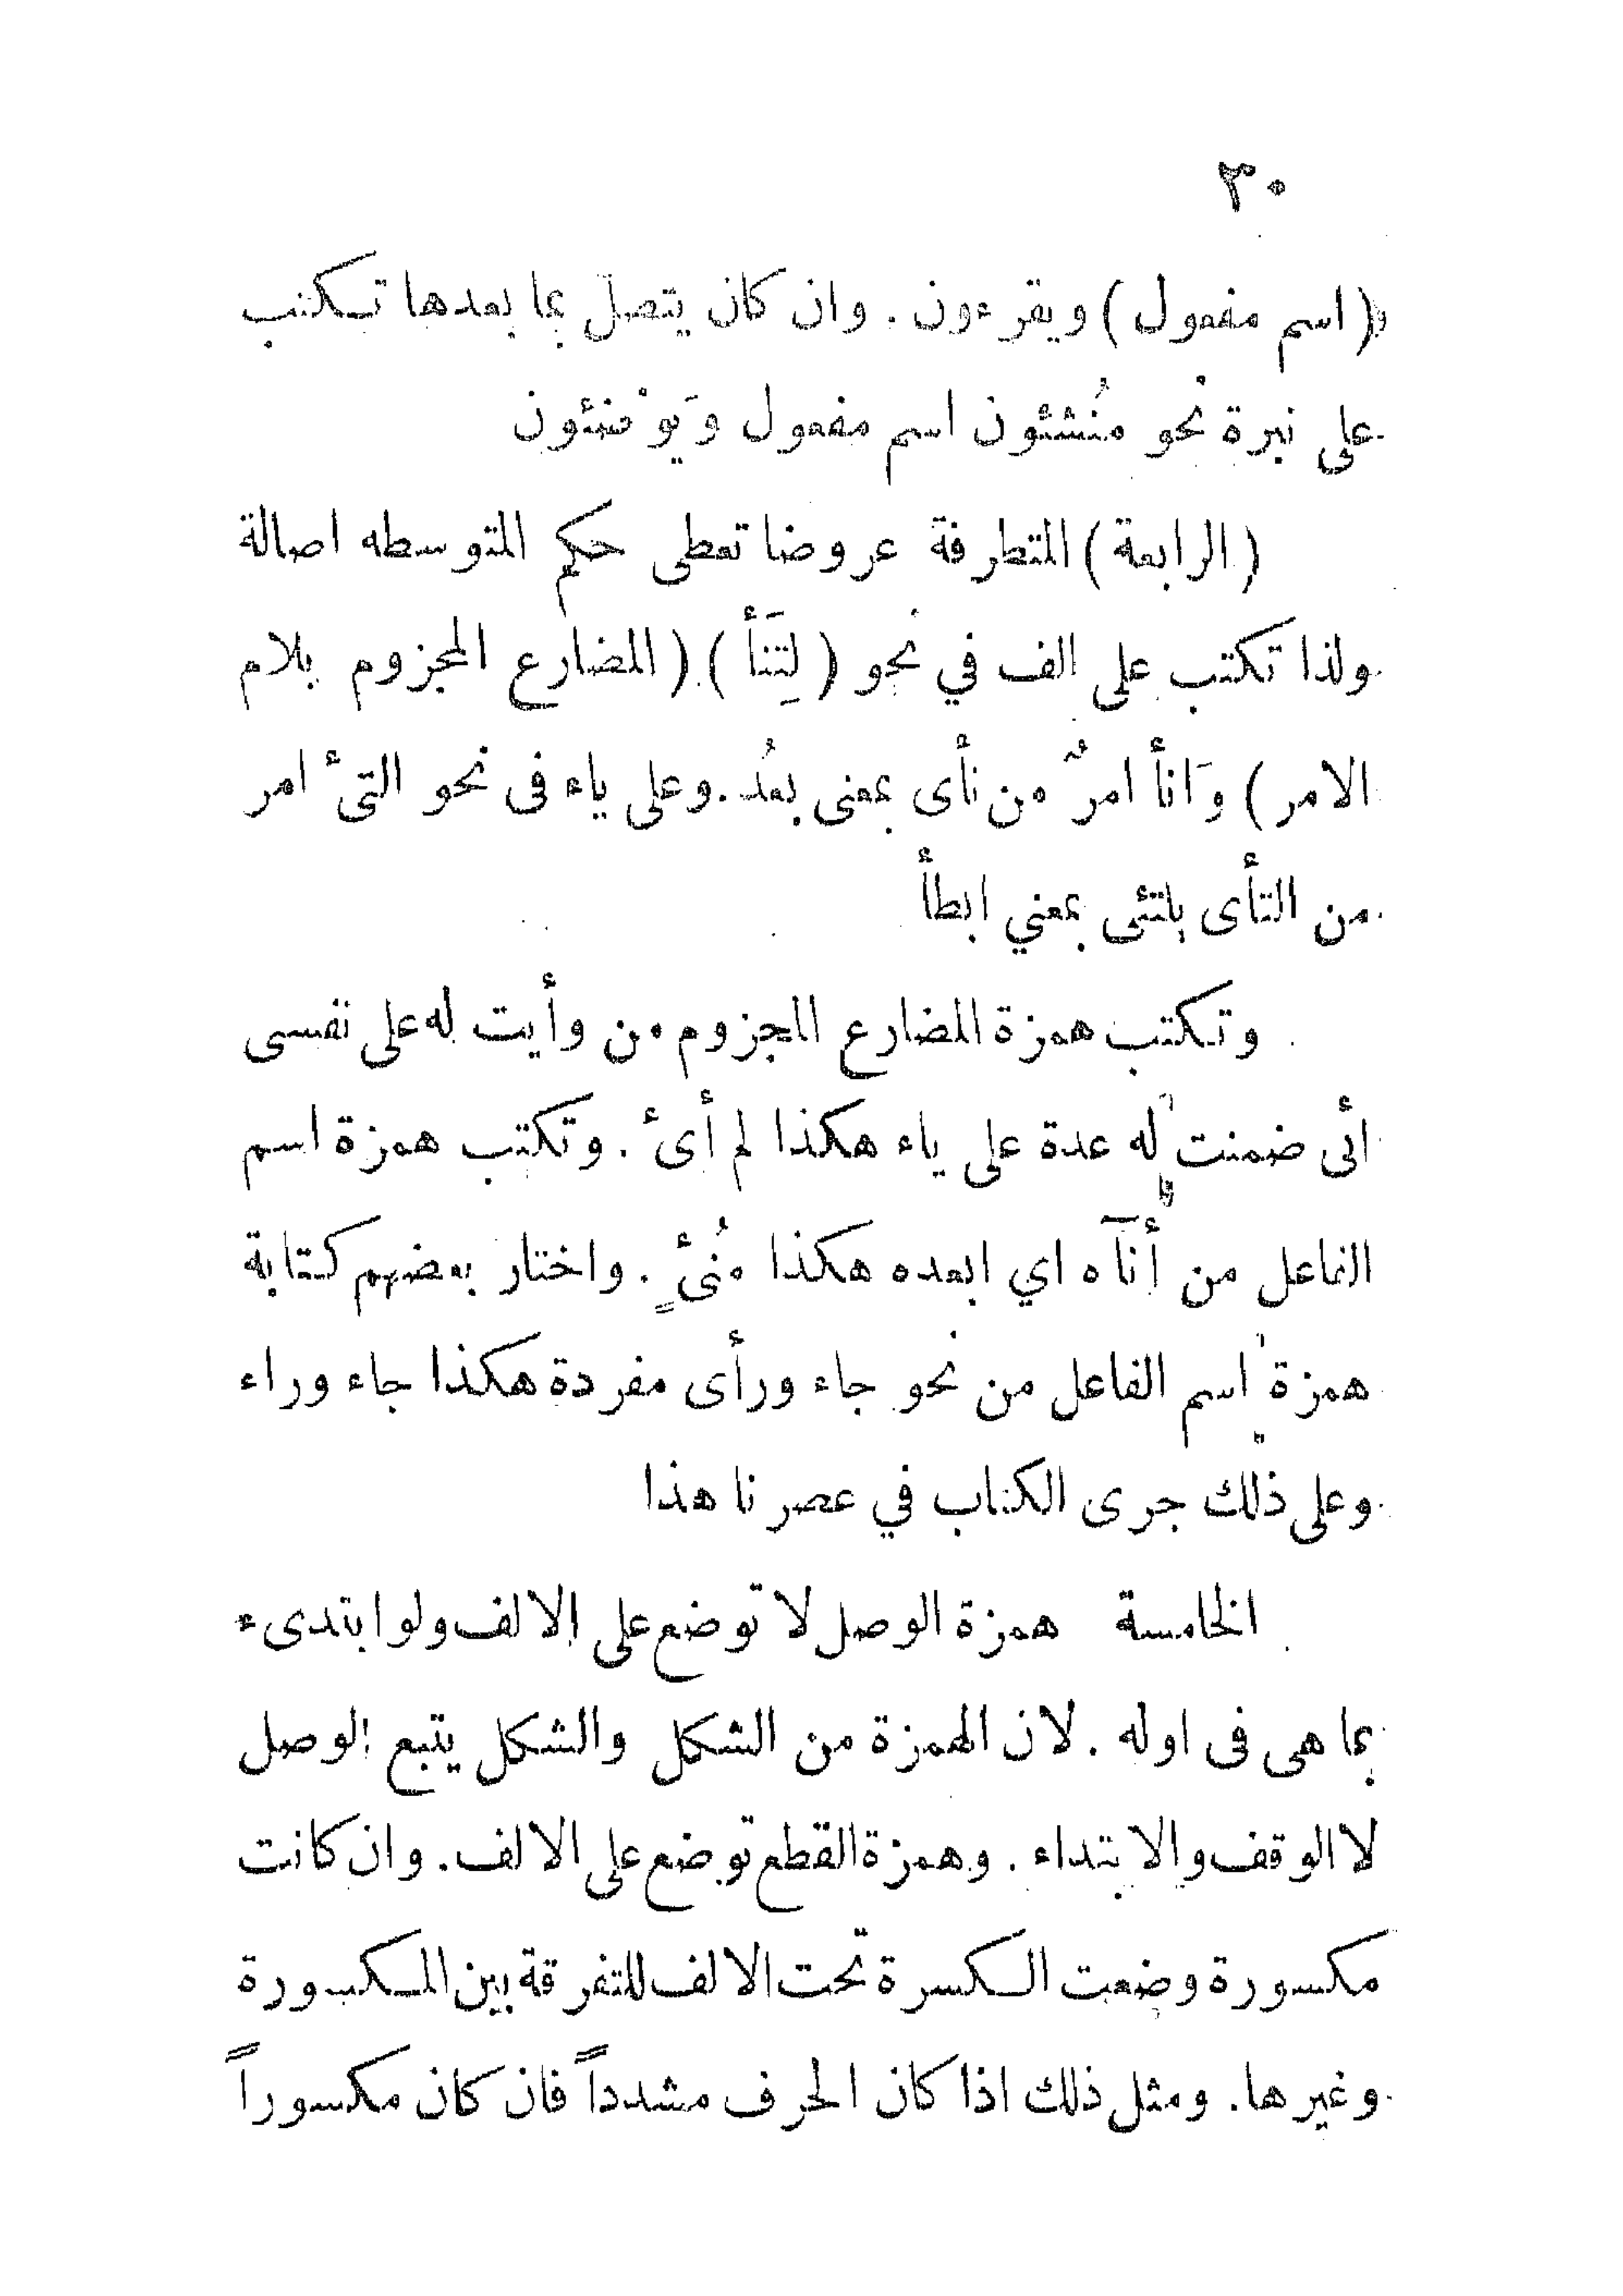 ٣٠
(اسم مفعول) ويقرءون. وان كان يتصل بما بعدها تكتب
على نبرة نحو مُنشئون اسم مفعول وَيو
(الرابعة) المتطرفة عروضا تعطى حكم المتوسطه اصالة
ولذا تكتب على الف في نحو (لِتَنأَ) (المضارع المجزوم بلام
الامر) وَانأ امرٌ من نأى بمعنى بعُد. وعلى ياء فى نحو التئ امر
من التأى يلتئى بمعني ابطأ
وتكتب همزة المضارع المجزوم من وأيت له على نفسى
أئى ضمنت له عدة على ياء هكذا لم أئ. وتكتب همزة اسم
الفاعل من أنآه اي ابعده هكذا مُنئٍ. واختار بعضهم كتابة
همزة اسم الفاعل من نحو جاء ورأى مفردة هكذا جاء وراء
وعلى ذلك جرى الكتاب في عصرنا هذا
الخامسة همزة الوصل لا توضع على الالف ولو ابتدىء
بما هى فى اوله. لان الهمزة من الشكل والشكل يتبع الوصل
لا الوقف والابتداء. وهمزة القطع توضع على الالف. وان كانت
مكسورة وضعت الكسرة تحت الالف للتفرقة بين المكسورة
وغيرها. ومثل ذلك اذا كان الحرف مشدداً فان كان مكسوراً